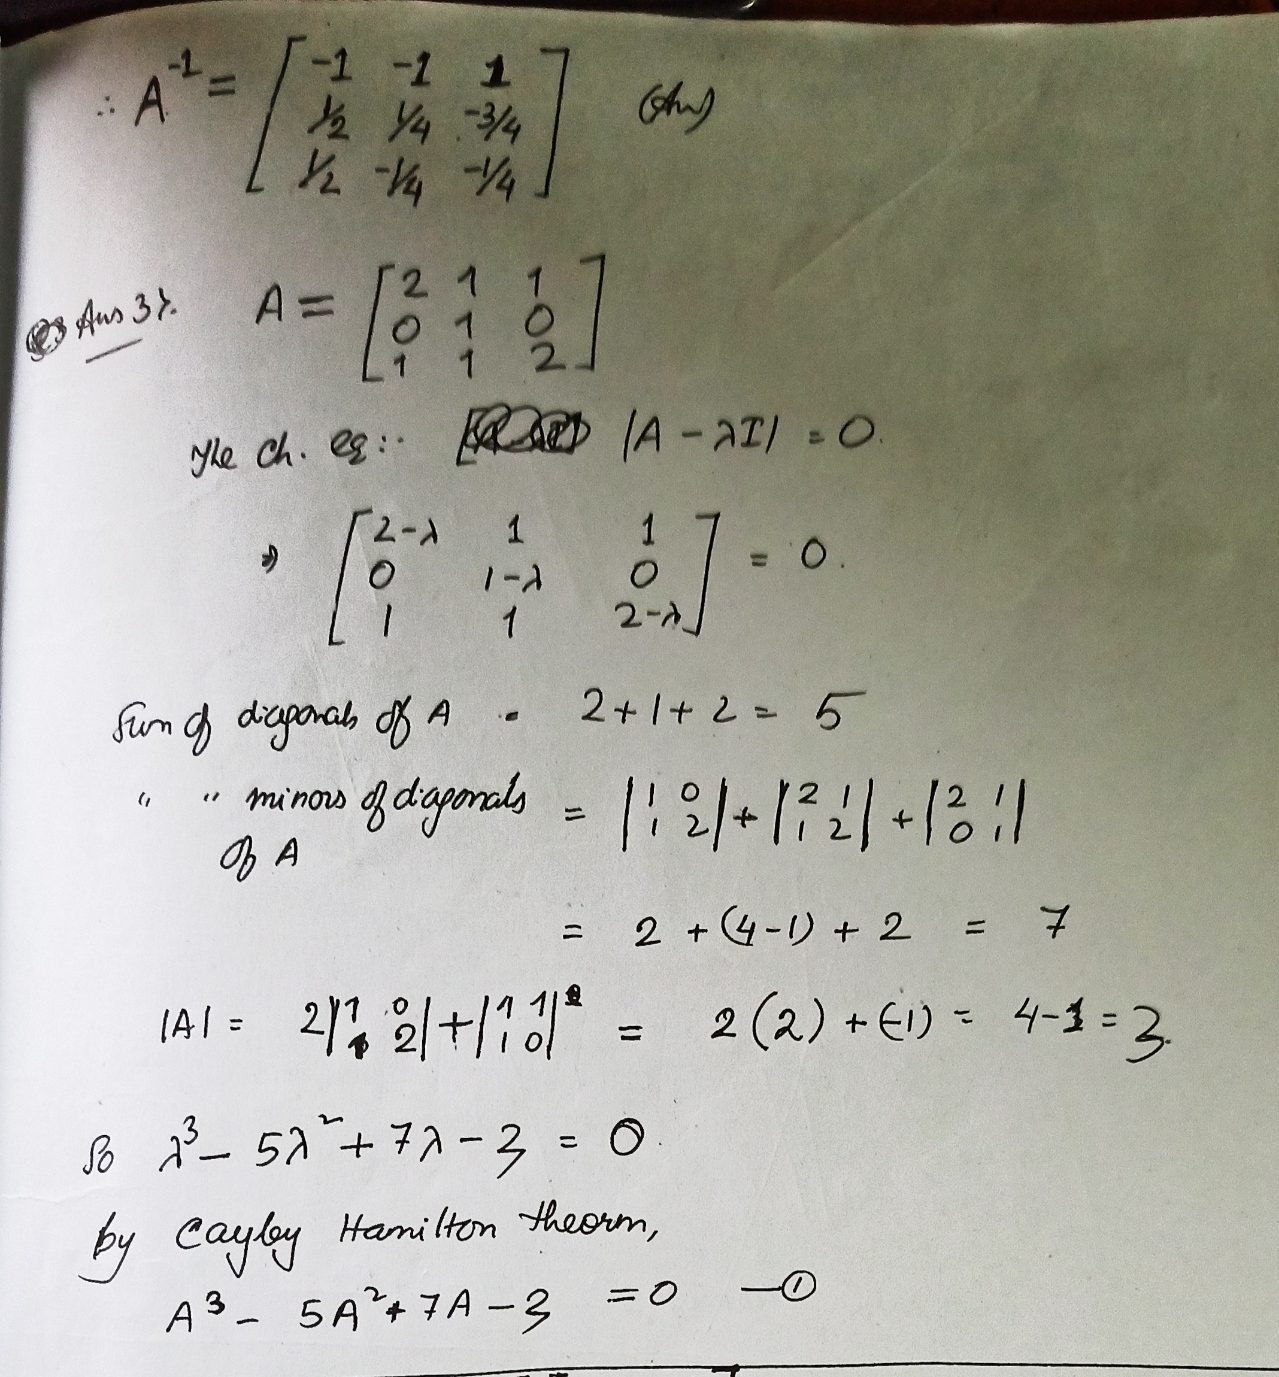 ∴ A⁻¹ = [ -1 -1 1
1/2 1/4 -3/4
1/2 -1/4 -1/4 ] (Ans)
Ans 3). A = [ 2 1 1
0 1 0
1 1 2 ]
The Ch. eq:. |A - λI| = 0.
⇒ [ 2-λ 1 1
0 1-λ 0
1 1 2-λ ] = 0.
Sum of diagonals of A = 2+1+2 = 5
" " minors of diagonals = |1 0
1 2| + |2 1
1 2| + |2 1
0 1|
of A
= 2 + (4-1) + 2 = 7
|A| = 2|1 0
1 2| + |1 1
1 0| = 2(2) + (-1) = 4-1 = 3.
So λ³ - 5λ² + 7λ - 3 = 0.
by Cayley Hamilton theorm,
A³ - 5A² + 7A - 3 = 0 —①